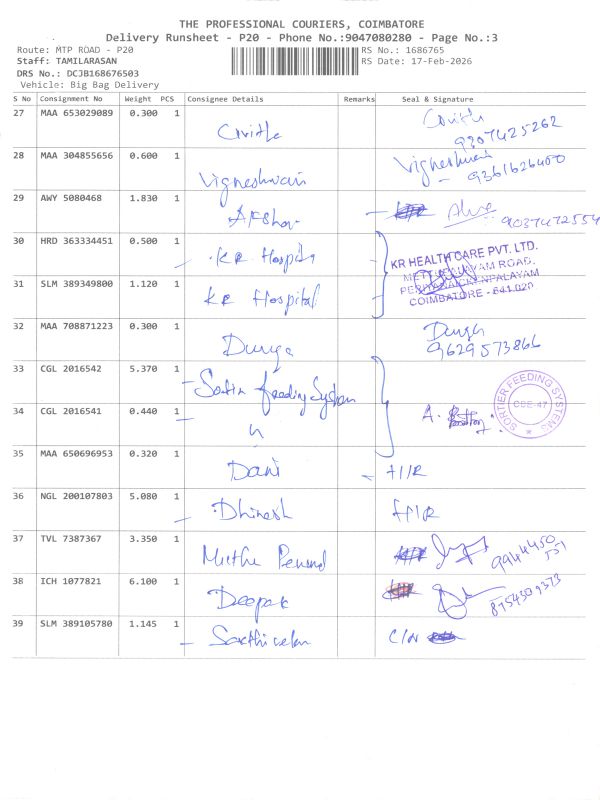 THE PROFESSIONAL COURIERS, COIMBATORE
Delivery Runsheet - P20 - Phone No.:9047080280 - Page No.:3
Route: MTP ROAD - P20
RS No.: 1686765
Staff: TAMILARASAN
RS Date: 17-Feb-2026
DRS No.: DCJB168676503
Vehicle: Big Bag Delivery
S No Consignment No Weight PCS Consignee Details Remarks Seal & Signature
27 MAA 653029089 0.300 1
9307425262
28 MAA 304855656 0.600 1 Vigneshwari Vigneshwari
9361626400
29 AWY 5080468 1.830 1 Afshar
9037472554
30 HRD 363334451 0.500 1 KR Hospital
KR HEALTH CARE PVT. LTD.
METTUPALAYAM ROAD,
PERIYANAICKENPALAYAM
COIMBATORE - 641 020
31 SLM 389349800 1.120 1 KR Hospital
32 MAA 708871223 0.300 1 Durga Durga
9629573866
33 CGL 2016542 5.370 1 Feeding System
SORTIER FEEDING SYSTEMS
CBE-47
34 CGL 2016541 0.440 1 "
35 MAA 650696953 0.320 1 Dani
36 NGL 200107803 5.080 1 Dhinesh
37 TVL 7387367 3.350 1
9944450
551
38 ICH 1077821 6.100 1 Deepak
8754509373
39 SLM 389105780 1.145 1 Sakthivelan